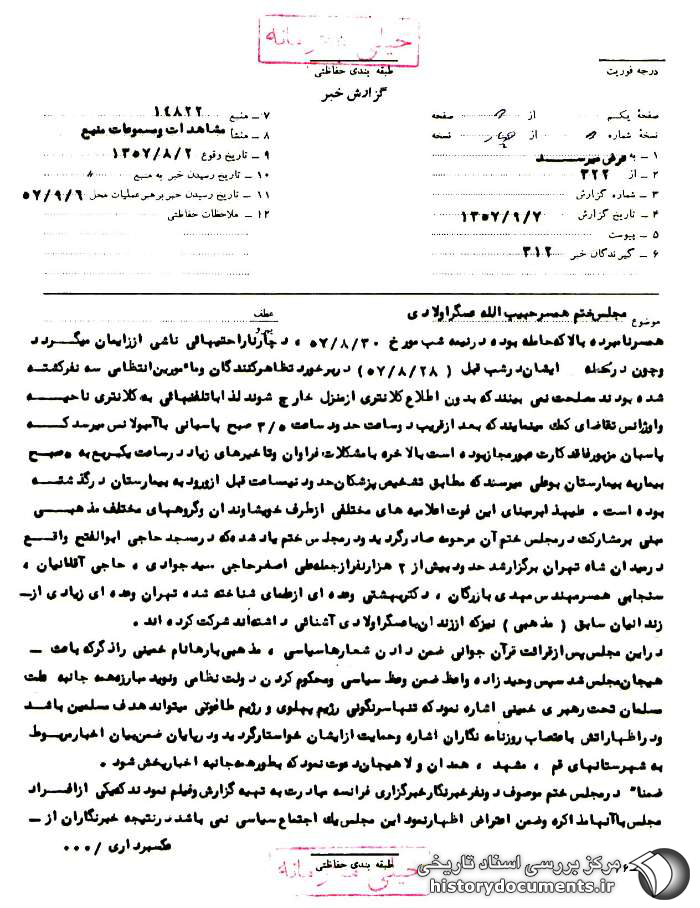 خیلی محرمانه
طبقه بندی حفاظتی
درجه فوریت
گزارش خبر
صفحه یکم از صفحه
نسخه شماره از نسخه
۱ ـ به عرض میرسد
۲ ـ از ۳۲۲
۳ ـ شماره گزارش
۴ ـ تاریخ گزارش ۱۳۵۷/۹/۷
۵ ـ پیوست
۶ ـ گیرندگان خبر ۳۱۲
۷ ـ منبع ۱۴۸۲۲
۸ ـ منشأ مشاهدات ومسموعات منبع
۹ ـ تاریخ وقوع ۱۳۵۷/۸/۲
۱۰ ـ تاریخ رسیدن خبر به منبع "
۱۱ ـ تاریخ رسیدن خبر برهبر عملیات محل ۵۷/۹/۶
۱۲ ـ ملاحظات حفاظتی
موضوع مجلس ختم همسر حبیب الله عسگراولادی
عطف
پیرو
همسر نامبرده بالا که حامله بوده در نیمه شب مورخ ۵۷/۸/۳۰ ، دچار ناراحتیهائی ناشی از زایمان میگردد
وچون در ایشان در شب قبل ( ۵۷/۸/۲۸ ) در برخورد تظاهرکنندگان ومأمورین انتظامی سه نفر کشته
شده بودند مصلحت نمی بینند که بدون اطلاع کلانتری از منزل خارج شوند لذا با تلفنهائی به کلانتری ناحیه
و اورژانس تقاضای کمک مینمایند که بعد از قریب دوساعت حدود ساعت ۳/۵ صبح پاسبانی با آمبولانس میرسد که
پاسبان مزبور فاقد کارت عبور مجاز بوده است بالاخره با مشکلات فراوان وتاخیرهای زیاد در ساعت یکربع به ۵ صبح
بیمار به بیمارستان بوعلی میرسند که مطابق تشخیص پزشکان حدود نیمساعت قبل از ورود به بیمارستان درگذشته
بوده است . علیهذا بر مبنای این فوت اعلامیه های مختلفی از طرف خویشاوندان وگروههای مختلف مذهبی
مبنی بر مشارکت در مجلس ختم آن مرحومه صادر گردید ودر مجلس ختم یاد شده که در مسجد حاجی ابوالفتح واقع
در میدان شاه تهران برگزار شد حدود بیش از ۲ هزار نفر از جمله علی اصغر حاجی سید جوادی ، حاجی آقا مانیان ،
سنجابی همسر مهندس مهدی بازرگان ، دکتر بهشتی وعده ای از علمای شناخته شده تهران وعده ای زیادی از ـ
زندانیان سابق ( مذهبی ) نیز که از زندان با عسگراولادی آشنائی داشته اند شرکت کرده اند .
در این مجلس پس از قرائت قرآن جوانی ضمن دادن شعارها سیاسی ، مذهبی بارها نام خمینی را ذکر که باعث ـ
هیجان مجلس شد سپس وحید زاده واعظ ضمن وعظ سیاسی ومحکوم کردن دولت نظامی ونوید مبارزه همه جانبه ملت
مسلمان تحت رهبری خمینی اشاره نمود که تنها سرنگونی رژیم پهلوی و رژیم طاغوتی میتواند هدف مسلمین باشد
ودر اظهاراتش با عتصاب روزنامه نگاران اشاره وحمایت از ایشان خواستار گردید ودر پایان ضمن بیان اخبار مربوط
به شهرستانهای قم ، مشهد ، همدان و لاهیجان دعوت نمود که بطور همه جانبه اخبار پخش شود .
ضمنا" در مجلس ختم موصوف دونفر خبرنگار خبرگزاری فرانسه مبادرت به تهیه گزارش وفیلم نمودند که یکی از افراد
مجلس با آنها مذاکره وضمن اعتراض اظهار نمود این مجلس یک اجتماع سیاسی نمی باشد در نتیجه خبرنگاران از ـ
عکسبرداری /۰۰۰
طبقه بندی حفاظتی
خیلی محرمانه
مرکز بررسی اسناد تاریخی
historydocuments.ir